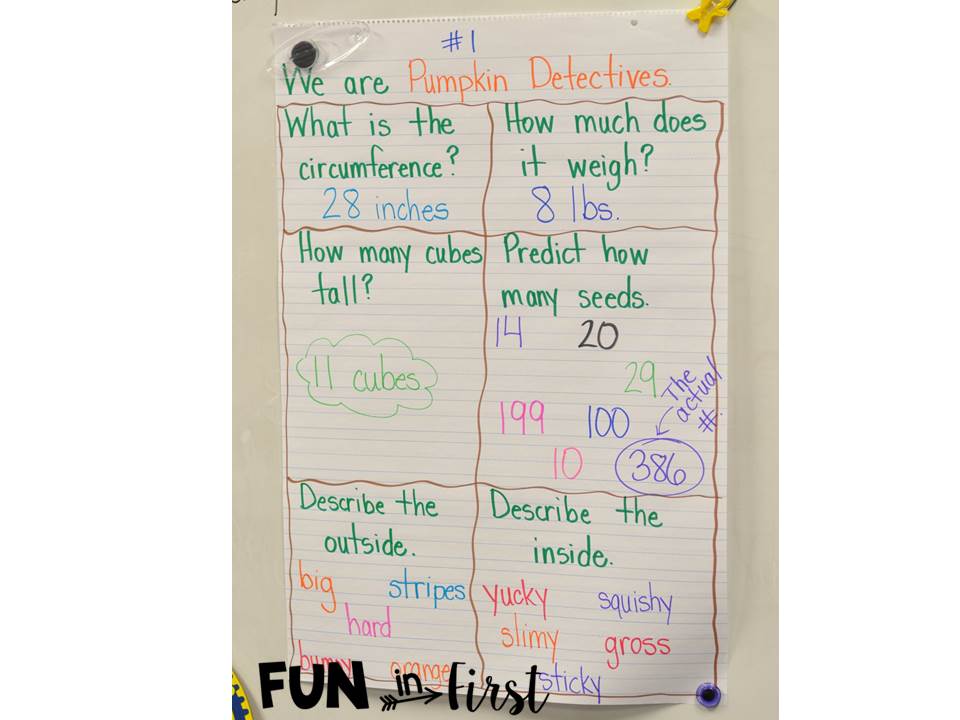 #1
We are Pumpkin Detectives.
What is the
circumference?
28 inches
How much does
it weigh?
8 lbs.
How many cubes
tall?
11 cubes
Predict how
many seeds.
14 20
29
199 100
10 386
The
actual
#.
Describe the
outside.
big stripes
hard
bumpy orange
Describe the
inside.
yucky squishy
slimy gross
sticky
FUN in First